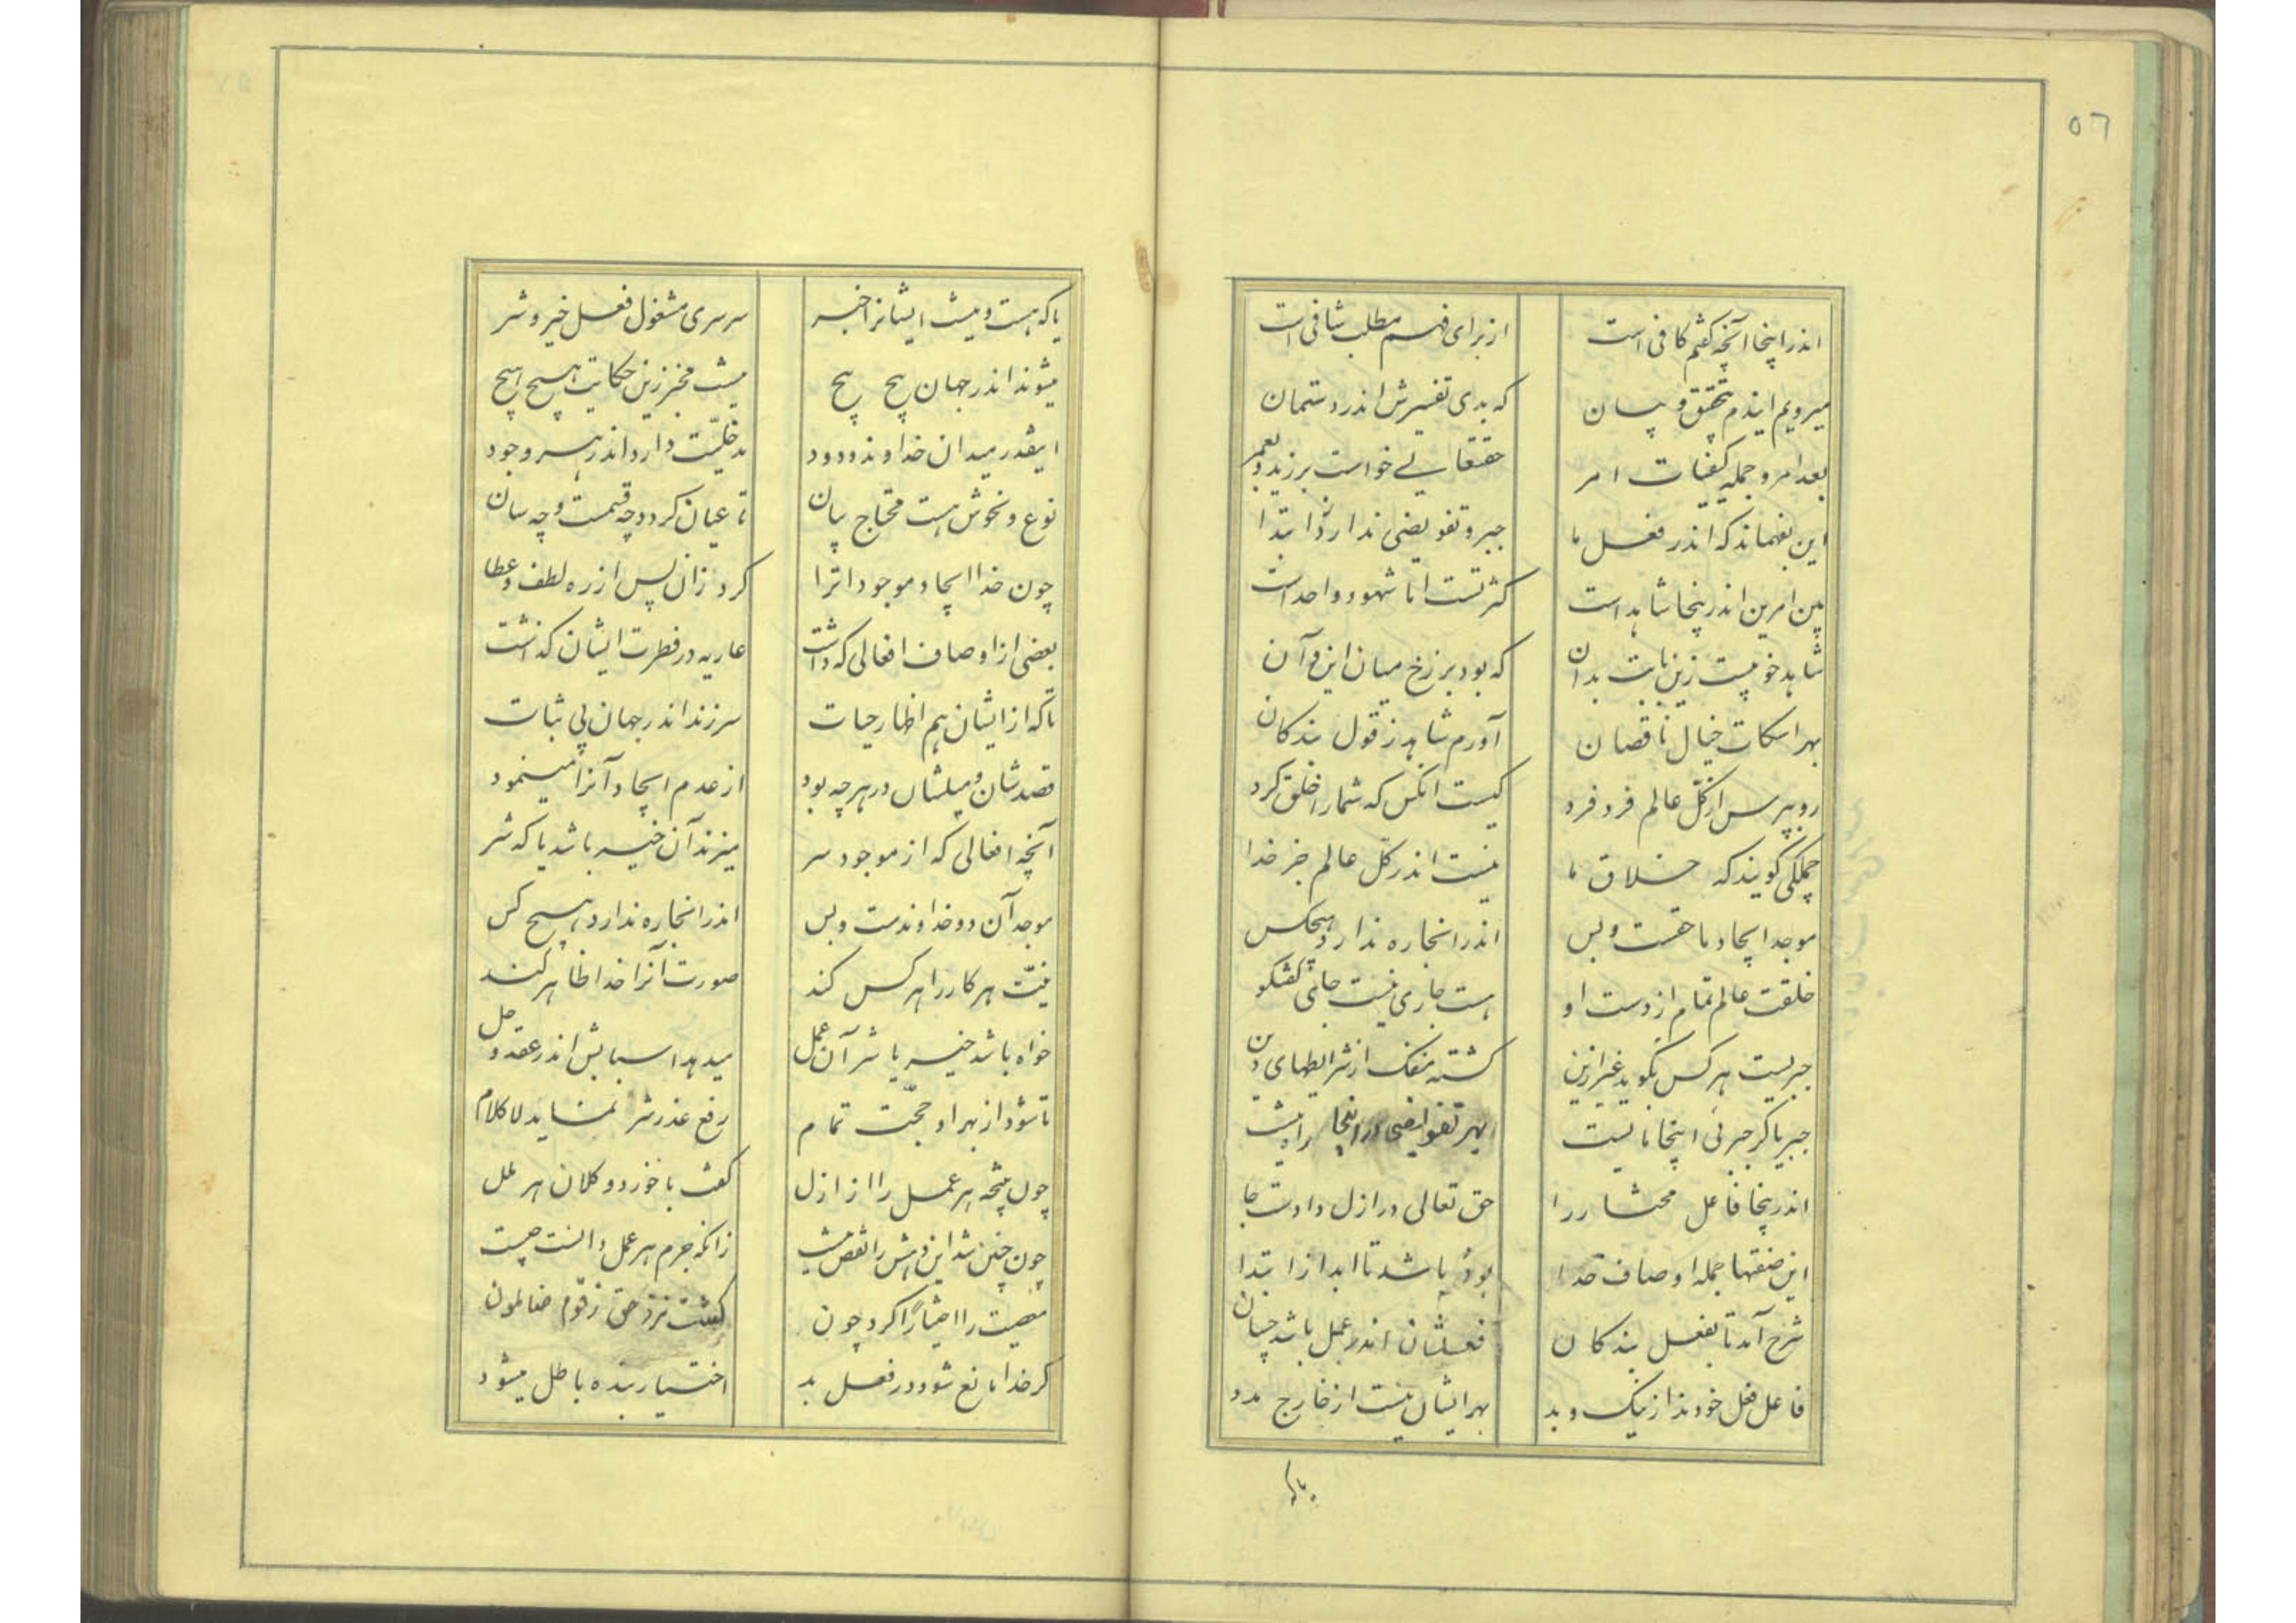 ٥٦
اندر اینجا آنچه گفتم کافی است
از برای فهم مطلب شافی است
میرویم ایندم بتحقیق و بیان
که بدی تفسیرش اندر دستمان
بعد امر و جمله کیفیات امر
حقتعالی خواست برزید و بعمر
این بفهماند که اندر فعل ما
جبر و تفویضی ندارد ابتدا
بین امرین اندر ینجا شاهد است
کثرتست اما شهود واحد است
شاهد خو نیست زین ثابت بدان
که بود برزخ میان این و آن
بهر اسکات خیال ناقصان
آورم شاهد ز قول بندکان
رو بپرس از کل عالم فرد فرد
کیست انکس که شما را خلق کرد
جملکی کویند که خلاق ما
نیست اندر کل عالم جز خدا
موجد ایجاد ما حقست و بس
اندر انجا ره ندارد هیچکس
خلقت عالم تمام از دست او
هست جاری نیست جای کفتکو
جبریست هر کس بگوید غیر ازین
کشته منفک از شرایطهای دین
جبر یا کر جبرئی اینجا نایست
بهر تفویضی در اینجا راه نیست
اندر ینجا فاعل مختار را
حق تعالی در ازل دادست جا
این صفتها جمله اوصاف خدا
بود باشد تا ابد از ابتدا
شرح آمد تا بفعل بندکان
فعلشان اندر عمل باشد چسان
فاعل فعل خودند از نیک و بد
بهر ایشان نیست از خارج مدد
یا که
یا که هست و نیست ایشانرا خبر
سرسری مشغول فعل خیر و شر
میشوند اندر جهان پیچ پیچ
نیست مخبر زین حکایت هیچ هیچ
اینقدر میدان خداوند ودود
مدخلیّت دارد اندر هر وجود
نوع و نحوش هست محتاج بیان
تا عیان کردد چه قسمست و چه سان
چون خدا ایجاد موجودات را
کرد زان پس از ره لطف و عطا
بعضی از اوصاف افعالی که داشت
عاریه در فطرت ایشان کذاشت
تا که از ایشان هم اظهار حیات
سر زند اندر جهان بی ثبات
قصدشان و میلشان در هر چه بود
از عدم ایجاد آنرا مینمود
آنچه افعالی که از موجود سر
میزند آن خیر باشد یا که شر
موجد آن دو خداوندست و بس
اندر انجا ره ندارد هیچ کس
نیّت هر کار را هر کس کند
صورت آنرا خدا ظاهر کند
خواه باشد خیر یا شر آن عمل
میدهد اسبابش اندر عقد و حل
تا شود از بهر او حجّت تمام
رفع عذر شر نماید لا کلام
چون نتیجه هر عمل را از ازل
کفت با خورد و کلان هر ملل
چون چنین شد این روش را نقص نیست
زانکه جرم هر عمل دانست چیست
معصیت را اختیارا کرد چون
کشت نزد حق ز قوم ظالمون
کر خدا مانع شود در فعل بد
اختیار بنده باطل میشود